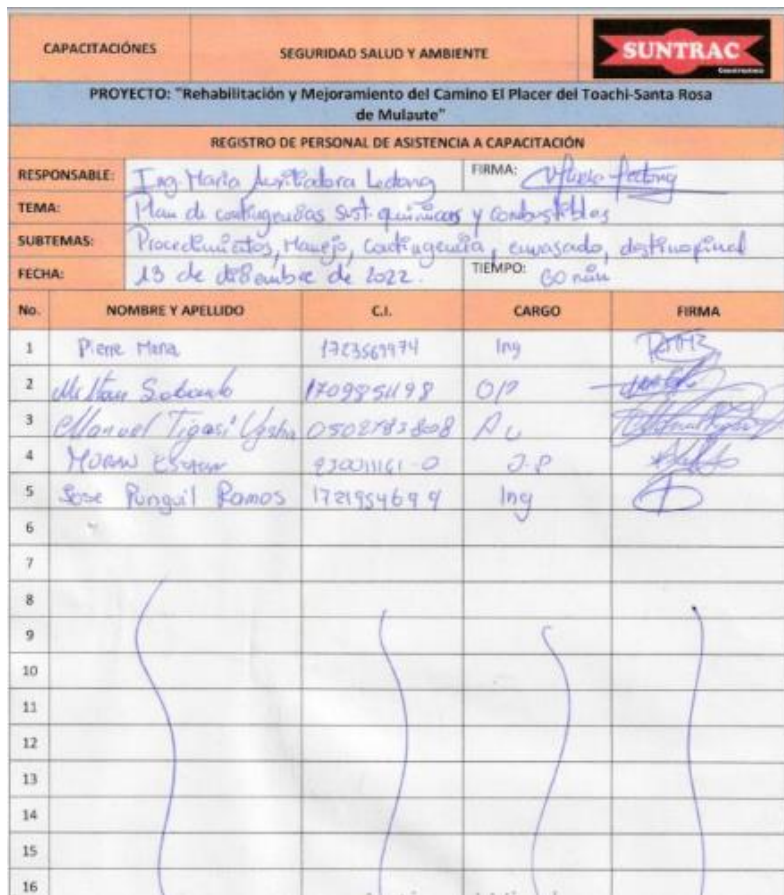 CAPACITACIÓNES
SEGURIDAD SALUD Y AMBIENTE
SUNTRAC
PROYECTO: "Rehabilitación y Mejoramiento del Camino El Placer del Toachi-Santa Rosa
de Mulaute"
REGISTRO DE PERSONAL DE ASISTENCIA A CAPACITACIÓN
RESPONSABLE: Ing. María Auxiliadora Ledong FIRMA:
TEMA: Plan de contingencias sust. químicas y combustibles
SUBTEMAS: Procedimientos, Manejo, contingencia, envasado, destino final
FECHA: 13 de diciembre de 2022. TIEMPO: 60 min
No. NOMBRE Y APELLIDO C.I. CARGO FIRMA
1 Pierre Mena 1723569974 Ing
2 1709851198 OP
3 Manuel Tigasi
4 MORAN
5 Jose Punguil Ramos Ing
6
7
8
9
10
11
12
13
14
15
16